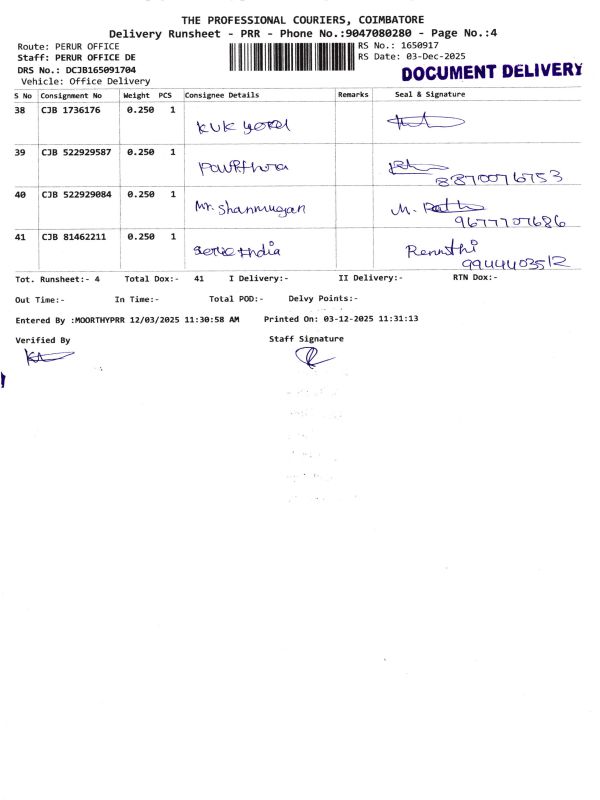 THE PROFESSIONAL COURIERS, COIMBATORE
Delivery Runsheet - PRR - Phone No.:9047080280 - Page No.:4
Route: PERUR OFFICE
RS No.: 1650917
Staff: PERUR OFFICE DE
RS Date: 03-Dec-2025
DRS No.: DCJB165091704
DOCUMENT DELIVERY
Vehicle: Office Delivery
S No Consignment No Weight PCS Consignee Details Remarks Seal & Signature
38 CJB 1736176 0.250 1
KUK
39 CJB 522929587 0.250 1
8870076753
40 CJB 522929084 0.250 1
Mr. Shanmugan M.
9677707686
41 CJB 81462211 0.250 1
India
9944403512
Tot. Runsheet:- 4 Total Dox:- 41 I Delivery:- II Delivery:- RTN Dox:-
Out Time:- In Time:- Total POD:- Delvy Points:-
Entered By :MOORTHYPRR 12/03/2025 11:30:58 AM Printed On: 03-12-2025 11:31:13
Verified By Staff Signature